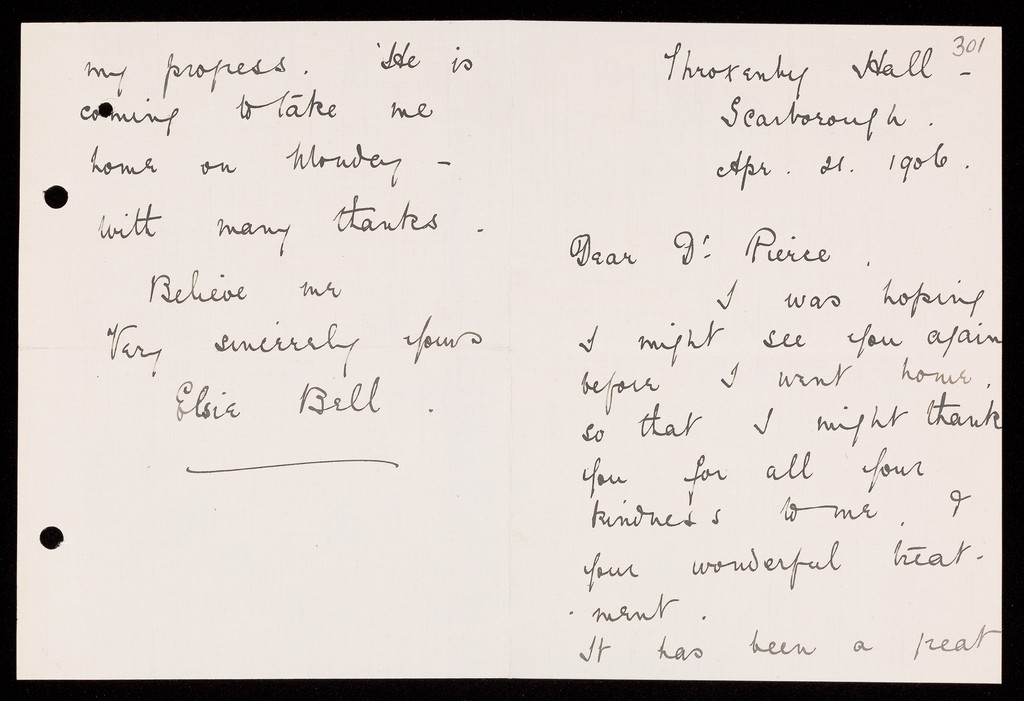 301
Throxenby Hall -
Scarborough.
Apr. 21. 1906.
Dear Dr. Pierce,
I was hoping
I might see you again
before I went home,
so that I might thank
you for all your
kindness to me, &
your wonderful treat-
-ment.
It has been a great
my progress. He is
coming to take me
home on Monday -
with many thanks.
Believe me
Very sincerely yours
Elsie Bell.